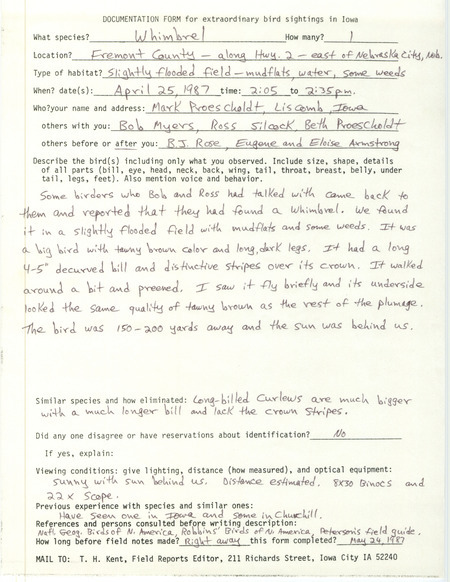 DOCUMENTATION FORM for extraordinary bird sightings in Iowa
What species? Whimbrel How many? 1
Location? Fremont County - along Hwy. 2 - east of Nebraska City, Neb.
Type of habitat? Slightly flooded field - mudflats, water, some weeds
When? date(s): April 25, 1987 time: 2:05 to 2:35pm.
Who?your name and address: Mark Proescholdt, Liscomb, Iowa
others with you: Bob Myers, Ross Silcock, Beth Proescholdt
others before or after you: B.J. Rose, Eugene and Eloise Armstrong
Describe the bird(s) including only what you observed. Include size, shape, details
of all parts (bill, eye, head, neck, back, wing, tail, throat, breast, belly, under
tail, legs, feet). Also mention voice and behavior.
Some birders who Bob and Ross had talked with came back to
them and reported that they had found a Whimbrel. We found
it in a slightly flooded field with mudflats and some weeds. It was
a big bird with tawny brown color and long, dark legs. It had a long
4-5" decurved bill and distinctive stripes over its crown. It walked
around a bit and preened. I saw it fly briefly and its underside
looked the same quality of tawny brown as the rest of the plumage.
The bird was 150-200 yards away and the sun was behind us.
Similar species and how eliminated: Long-billed Curlews are much bigger
with a much longer bill and lack the crown stripes.
Did any one disagree or have reservations about identification? No
If yes, explain:
Viewing conditions: give lighting, distance (how measured), and optical equipment:
sunny with sun behind us. Distance estimated. 8X30 Binocs and
22x Scope.
Previous experience with species and similar ones:
Have seen one in Iowa and some in Churchill.
References and persons consulted before writing description:
Natl. Geog. Birds of N. America, Robbins' Birds of N. America, Peterson's field guide.
How long before field notes made? Right away this form completed? May 24, 1987
MAIL TO: T. H. Kent, Field Reports Editor, 211 Richards Street, Iowa City IA 52240